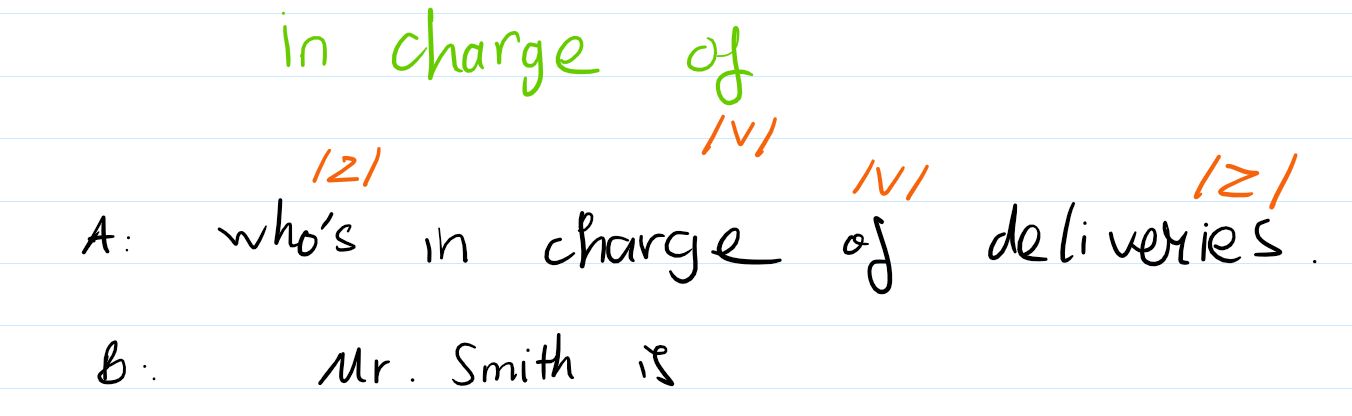 in charge of
/v/
/z/ /v/ /z/
A: who's in charge of deliveries.
B: Mr. Smith is